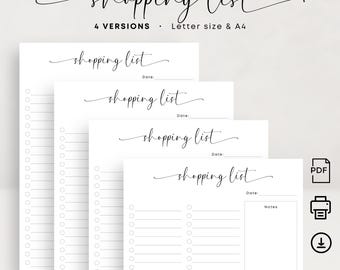 shopping list
4 VERSIONS • Letter size & A4
shopping list
Date:
shopping list
Date:
shopping list
Date:
shopping list
Date:
Notes
PDF